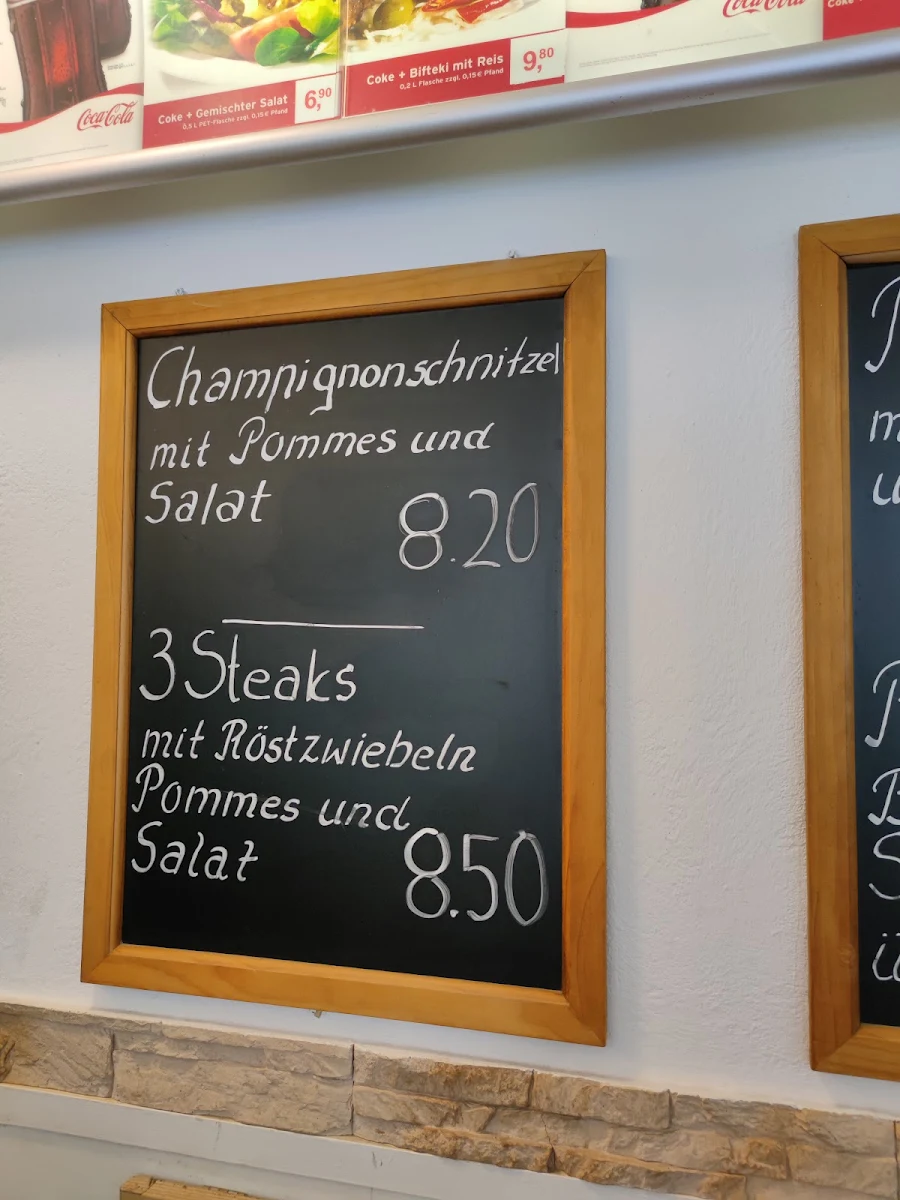 Coca-Cola
Coke + Gemischter Salat
0,5 L PET-Flasche zzgl. 0,15 € Pfand
6,90
Coke + Bifteki mit Reis
0,2 L Flasche zzgl. 0,15 € Pfand
9,80
Coca-Cola
Coke
Champignonschnitzel
mit Pommes und
Salat
8.20
3 Steaks
mit Röstzwiebeln
Pommes und
Salat
8.50